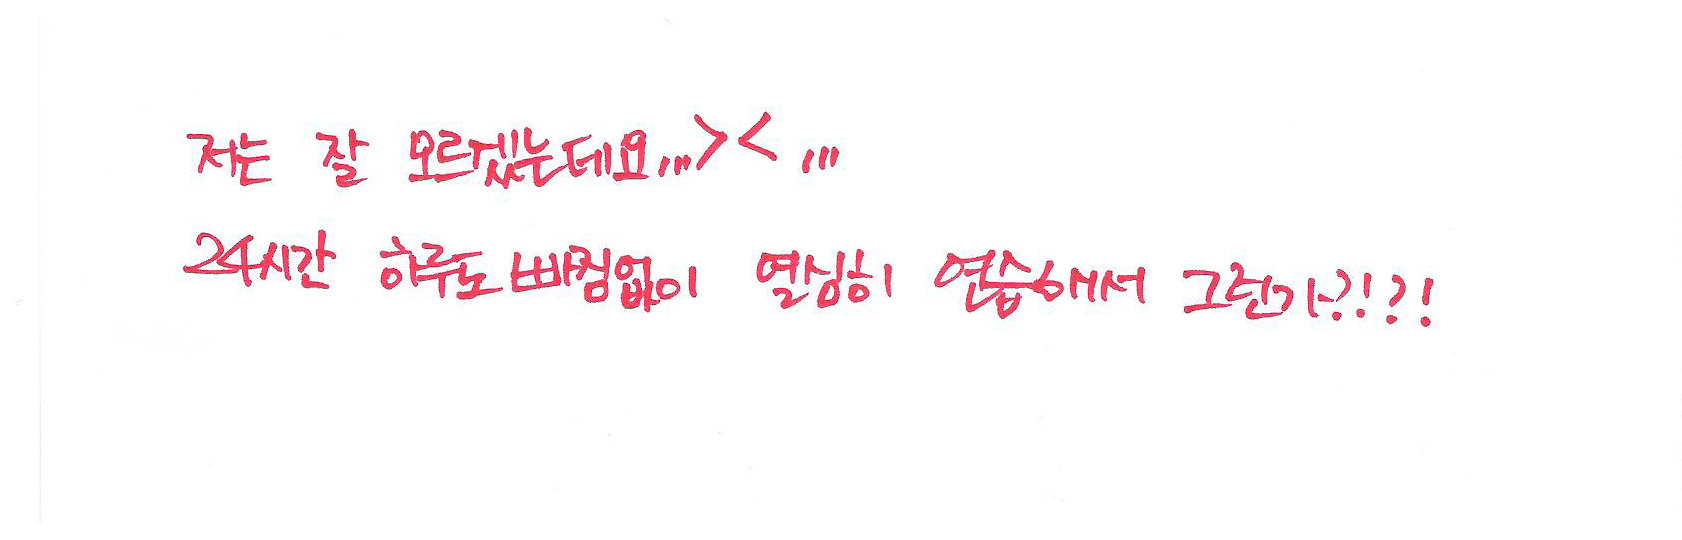 저는 잘 모르겠는데요,,,>< ,,,
24시간 하루도 빠짐없이 열심히 연습해서 그런가?!?!